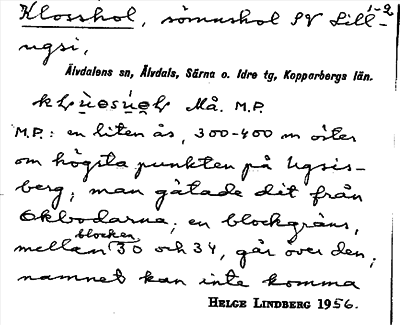 1-2
Klosshol, sömnshol SV Lill-
ugsi,
Älvdalens sn, Älvdals, Särna o. Idre tg, Kopparbergs län.
Må. M.P.
M.P.: en liten ås, 300-400 m öster
om högsta punkten på Ugsis-
berg; man gåtade dit från
Ekbodarna; en blockgräns,
mellan blocken 30 och 34, går över den;
namnet kan inte komma
HELGE LINDBERG 1956.